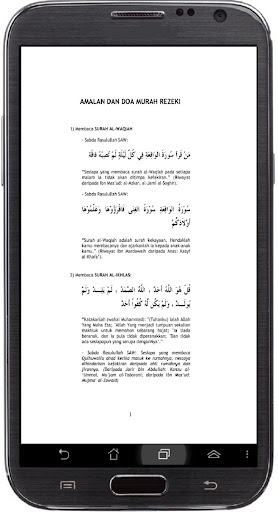 AMALAN DAN DOA MURAH REZEKI
1) Membaca SURAH AL-WAQIAH
- Sabda Rasulullah SAW:
مَنْ قَرَأَ سُورَةَ الْوَاقِعَةِ فِي كُلِّ لَيْلَةٍ لَمْ تُصِبْهُ فَاقَةٌ
"Sesiapa yang membaca surah al-Waqiah pada setiap
malam ia tidak akan ditimpa kefakiran." (Riwayat
daripada Ibn Mas'ud: al-Mekar, al-Jami al-Soghir).
- Sabda Rasulullah SAW:
سُورَةُ الْوَاقِعَةِ سُورَةُ الْغِنَى فَاقْرَؤُوهَا وَعَلِّمُوهَا
أَوْلَادَكُمْ
"Surah al-Waqiah adalah surah kekayaan. Hendaklah
kamu membacanya dan ajarkanlah ia kepada anak-anak
kamu." (Riwayat Ibn Mardawaih daripada Anas: Kasyf
al-Khafa').
2) Membaca SURAH AL-IKHLAS:
قُلْ هُوَ اللَّهُ أَحَدٌ ، اللَّهُ الصَّمَدُ ، لَمْ يَلِدْ وَلَمْ
يُولَدْ ، وَلَمْ يَكُنْ لَهُ كُفُوًا أَحَدٌ
"Katakanlah (wahai Muhammad): "(Tuhanku) Ialah Allah
Yang Maha Esa; "Allah Yang menjadi tumpuan sekalian
makhluk untuk memohon sebarang hajat; "Ia tiada
beranak, dan Ia pula tidak diperanakkan; "Dan tidak
ada sesiapapun yang serupa dengannya".
- Sabda Rasulullah SAW: Sesiapa yang membaca
Qulhuwallu ahad ketika masuk ke rumahnya, nescaya
dihindarkan kefakiran daripada ahli rumahnya dan
jirannya. (Daripada Jarir bin Abdullah: Kanzu al-
Ummal, Mu'jam al-Tabarani; daripada Ibn Mas'ud:
Mujma' al-Zawaid)
1